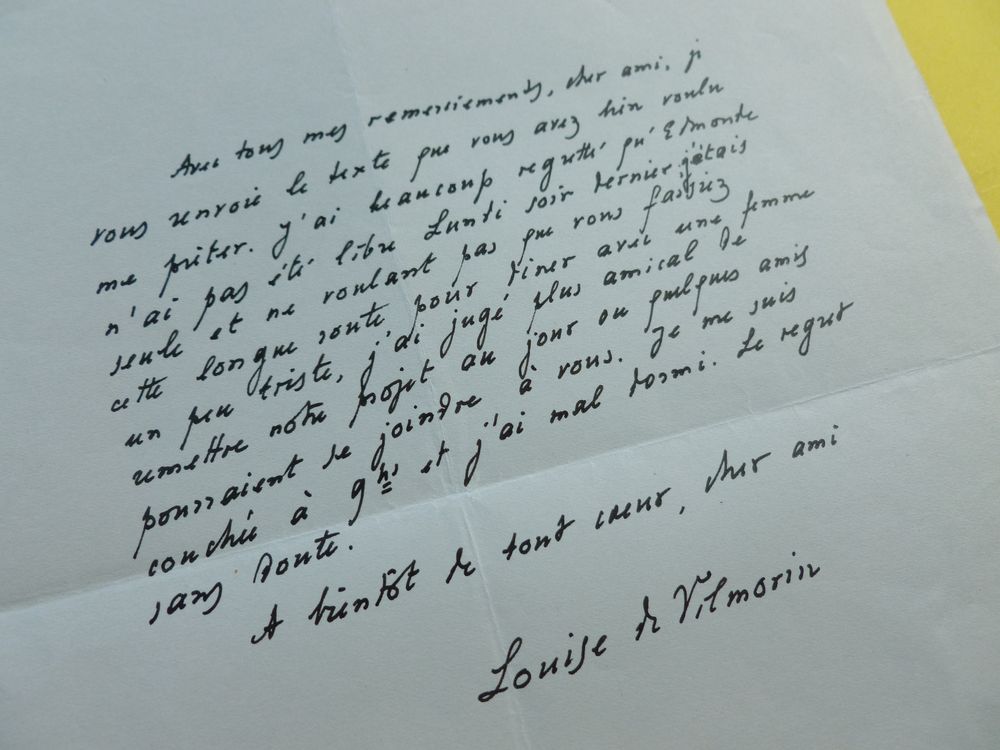 Avec tous mes remerciements, cher ami, je
vous renvoie le texte que vous avez bien voulu
me prêter. J'ai beaucoup regretté qu'Edmonde
n'ai pas été libre Lundi soir dernier j'étais
seule et ne voulant pas que vous fassiez
cette longue route, pour diner avec une femme
un peu triste, j'ai jugé plus amical de
remettre notre projet au jour ou quelques amis
pourraient se joindre à vous. Je me suis
couchée à 9hs et j'ai mal dormi. Le regret
sans doute.
A bientôt de tout cœur, cher ami
Louise de Vilmorin